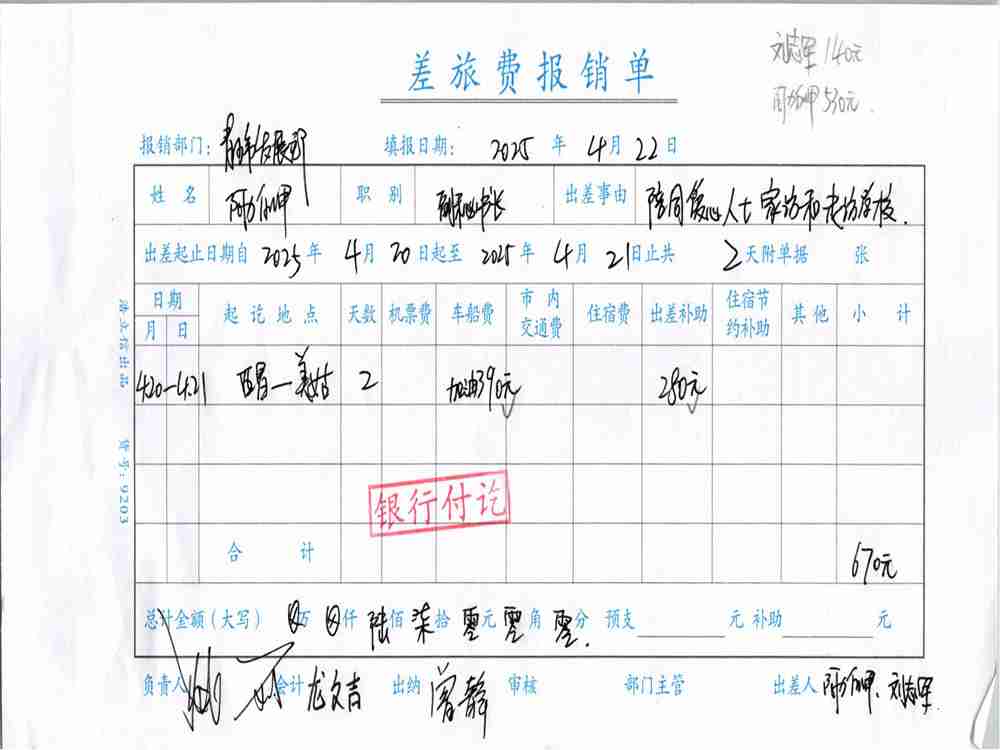 差旅费报销单
刘志军 140元
阿力么呷 530元.
报销部门: 青年发展部 填报日期: 2025 年 4月 22日
姓 名 职 别 副秘书长 出差事由 陪同爱心人士家访和走访学校.
出差起止日期自 2025年 4月 20日起至 2025年 4月 21日止共 2天附单据 张
日期 起讫地点 天数 机票费 车船费 市内交通费 住宿费 出差补助 住宿节约补助 其他 小计
月 日
4.20—4.21 西昌—美姑 2 加油390元 280元
银行付讫
合 计 670元
总计金额(大写) ⊗万 ⊗仟 陆佰 柒拾 零元 零角 零分 预支 元 补助 元
负责人 会计 龙文吉 出纳 曾静 审核 部门主管 出差人 刘志军
货号:9203